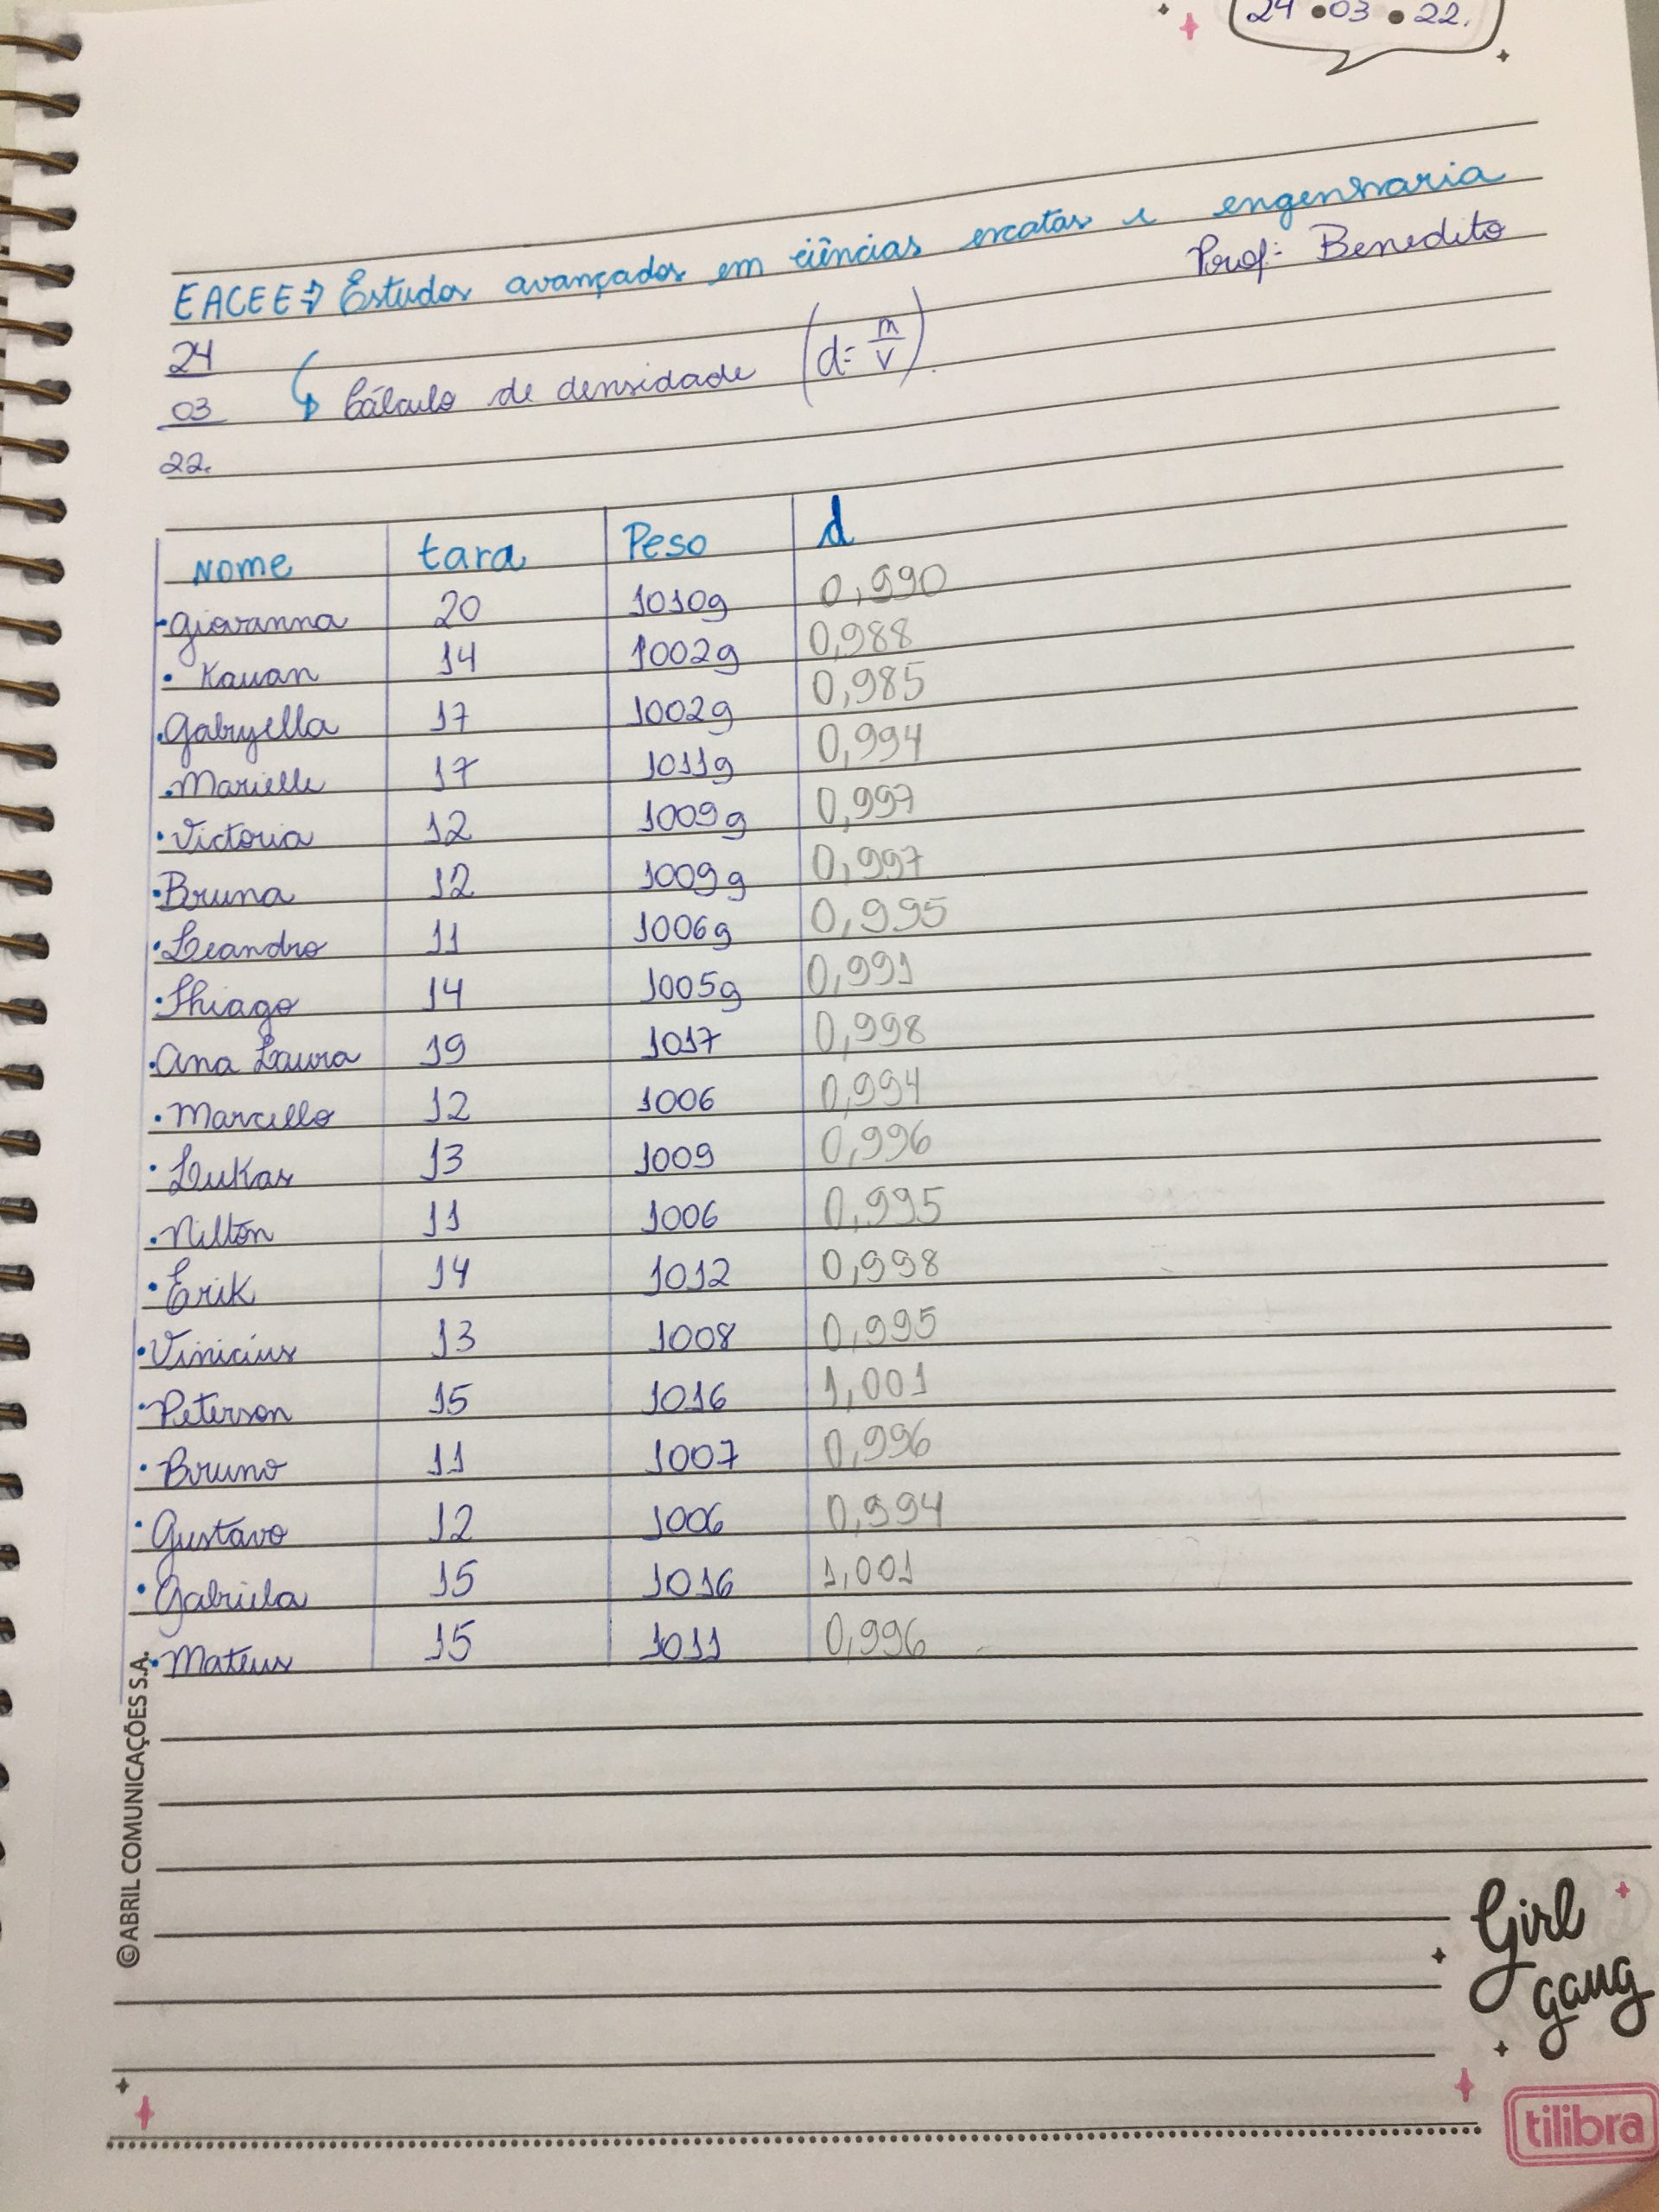 24 • 03 • 22.
EACEE ⇒ Estudos avançados em ciências exatas e engenharia
Prof: Benedito
24
03
22.
Cálculo de densidade (d = m/v).
Nome tara Peso d
• Giovanna 20 1010g 0,990
• Kauan 14 1002g 0,988
• Gabryella 17 1002g 0,985
• Marielle 17 1011g 0,994
• Victoria 12 1009g 0,997
• Bruna 12 1009g 0,997
• Leandro 11 1006g 0,995
• Thiago 14 1005g 0,991
• Ana Laura 19 1017 0,998
• Marcello 12 1006 0,994
• Lukas 13 1009 0,996
• Nilton 11 1006 0,995
• Erik 14 1012 0,998
• Vinicius 13 1008 0,995
• Peterson 15 1016 1,001
• Bruno 11 1007 0,996
• Gustavo 12 1006 0,994
• Gabriela 15 1016 1,001
• Mateus 15 1011 0,996
©ABRIL COMUNICAÇÕES S.A.
Girl
gang
tilibra